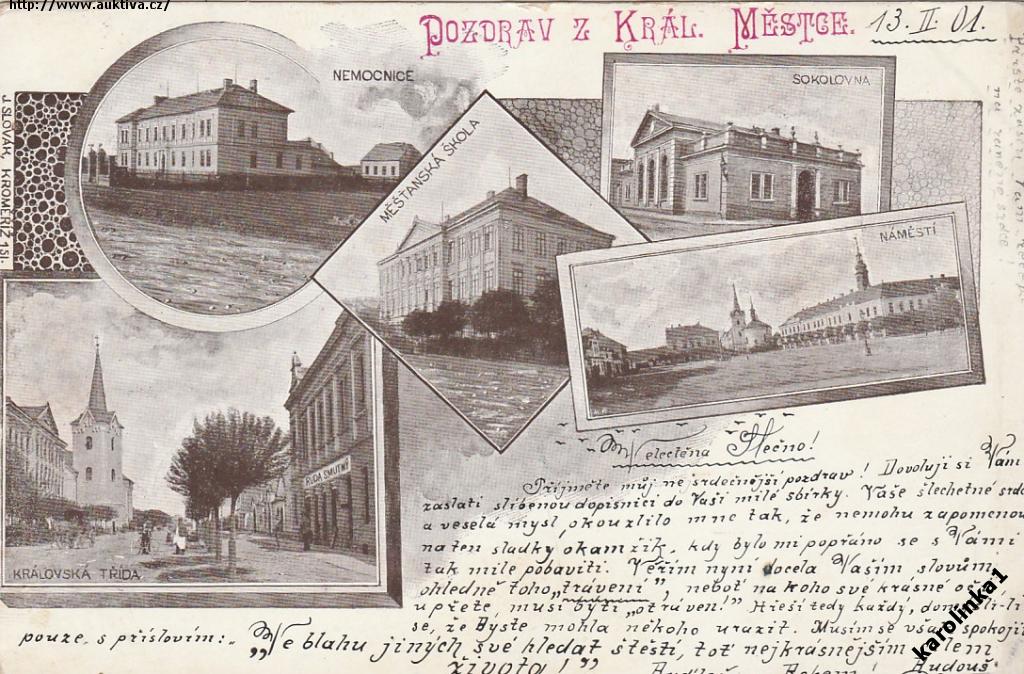 http://www.auktiva.cz/
POZDRAV Z KRÁL. MĚSTCE.
13. II. 01.
NEMOCNICE
SOKOLOVNA
MĚŠŤANSKÁ ŠKOLA
NÁMĚSTÍ
J. SLOVÁK, KROMĚŘÍŽ 151.
RUD. SMUTNÝ
KRÁLOVSKÁ TŘÍDA
Velectěná Slečno!
Přijměte můj nejsrdečnější pozdrav! Dovoluji si Vám
zaslati slíbenou dopisnici do Vaší milé sbírky. Vaše šlechetné srdc
a veselá mysl, okouzlilo mne tak, že nemohu zapomenou
na ten sladký okamžik, kdy bylo mi popřáno se s Vámi
tak mile pobaviti. Věřím nyní docela Vaším slovům
ohledně toho „trávení“, neboť na koho své krásné oč
upřete, musí býti „otráven!“ Hřeší tedy každý,
se, že Byste mohla někoho urazit. Musím se však spokoji
pouze s příslovím: „Ve blahu jiných své hledat štěstí, toť nejkrasnějším
života!“
karolinka1